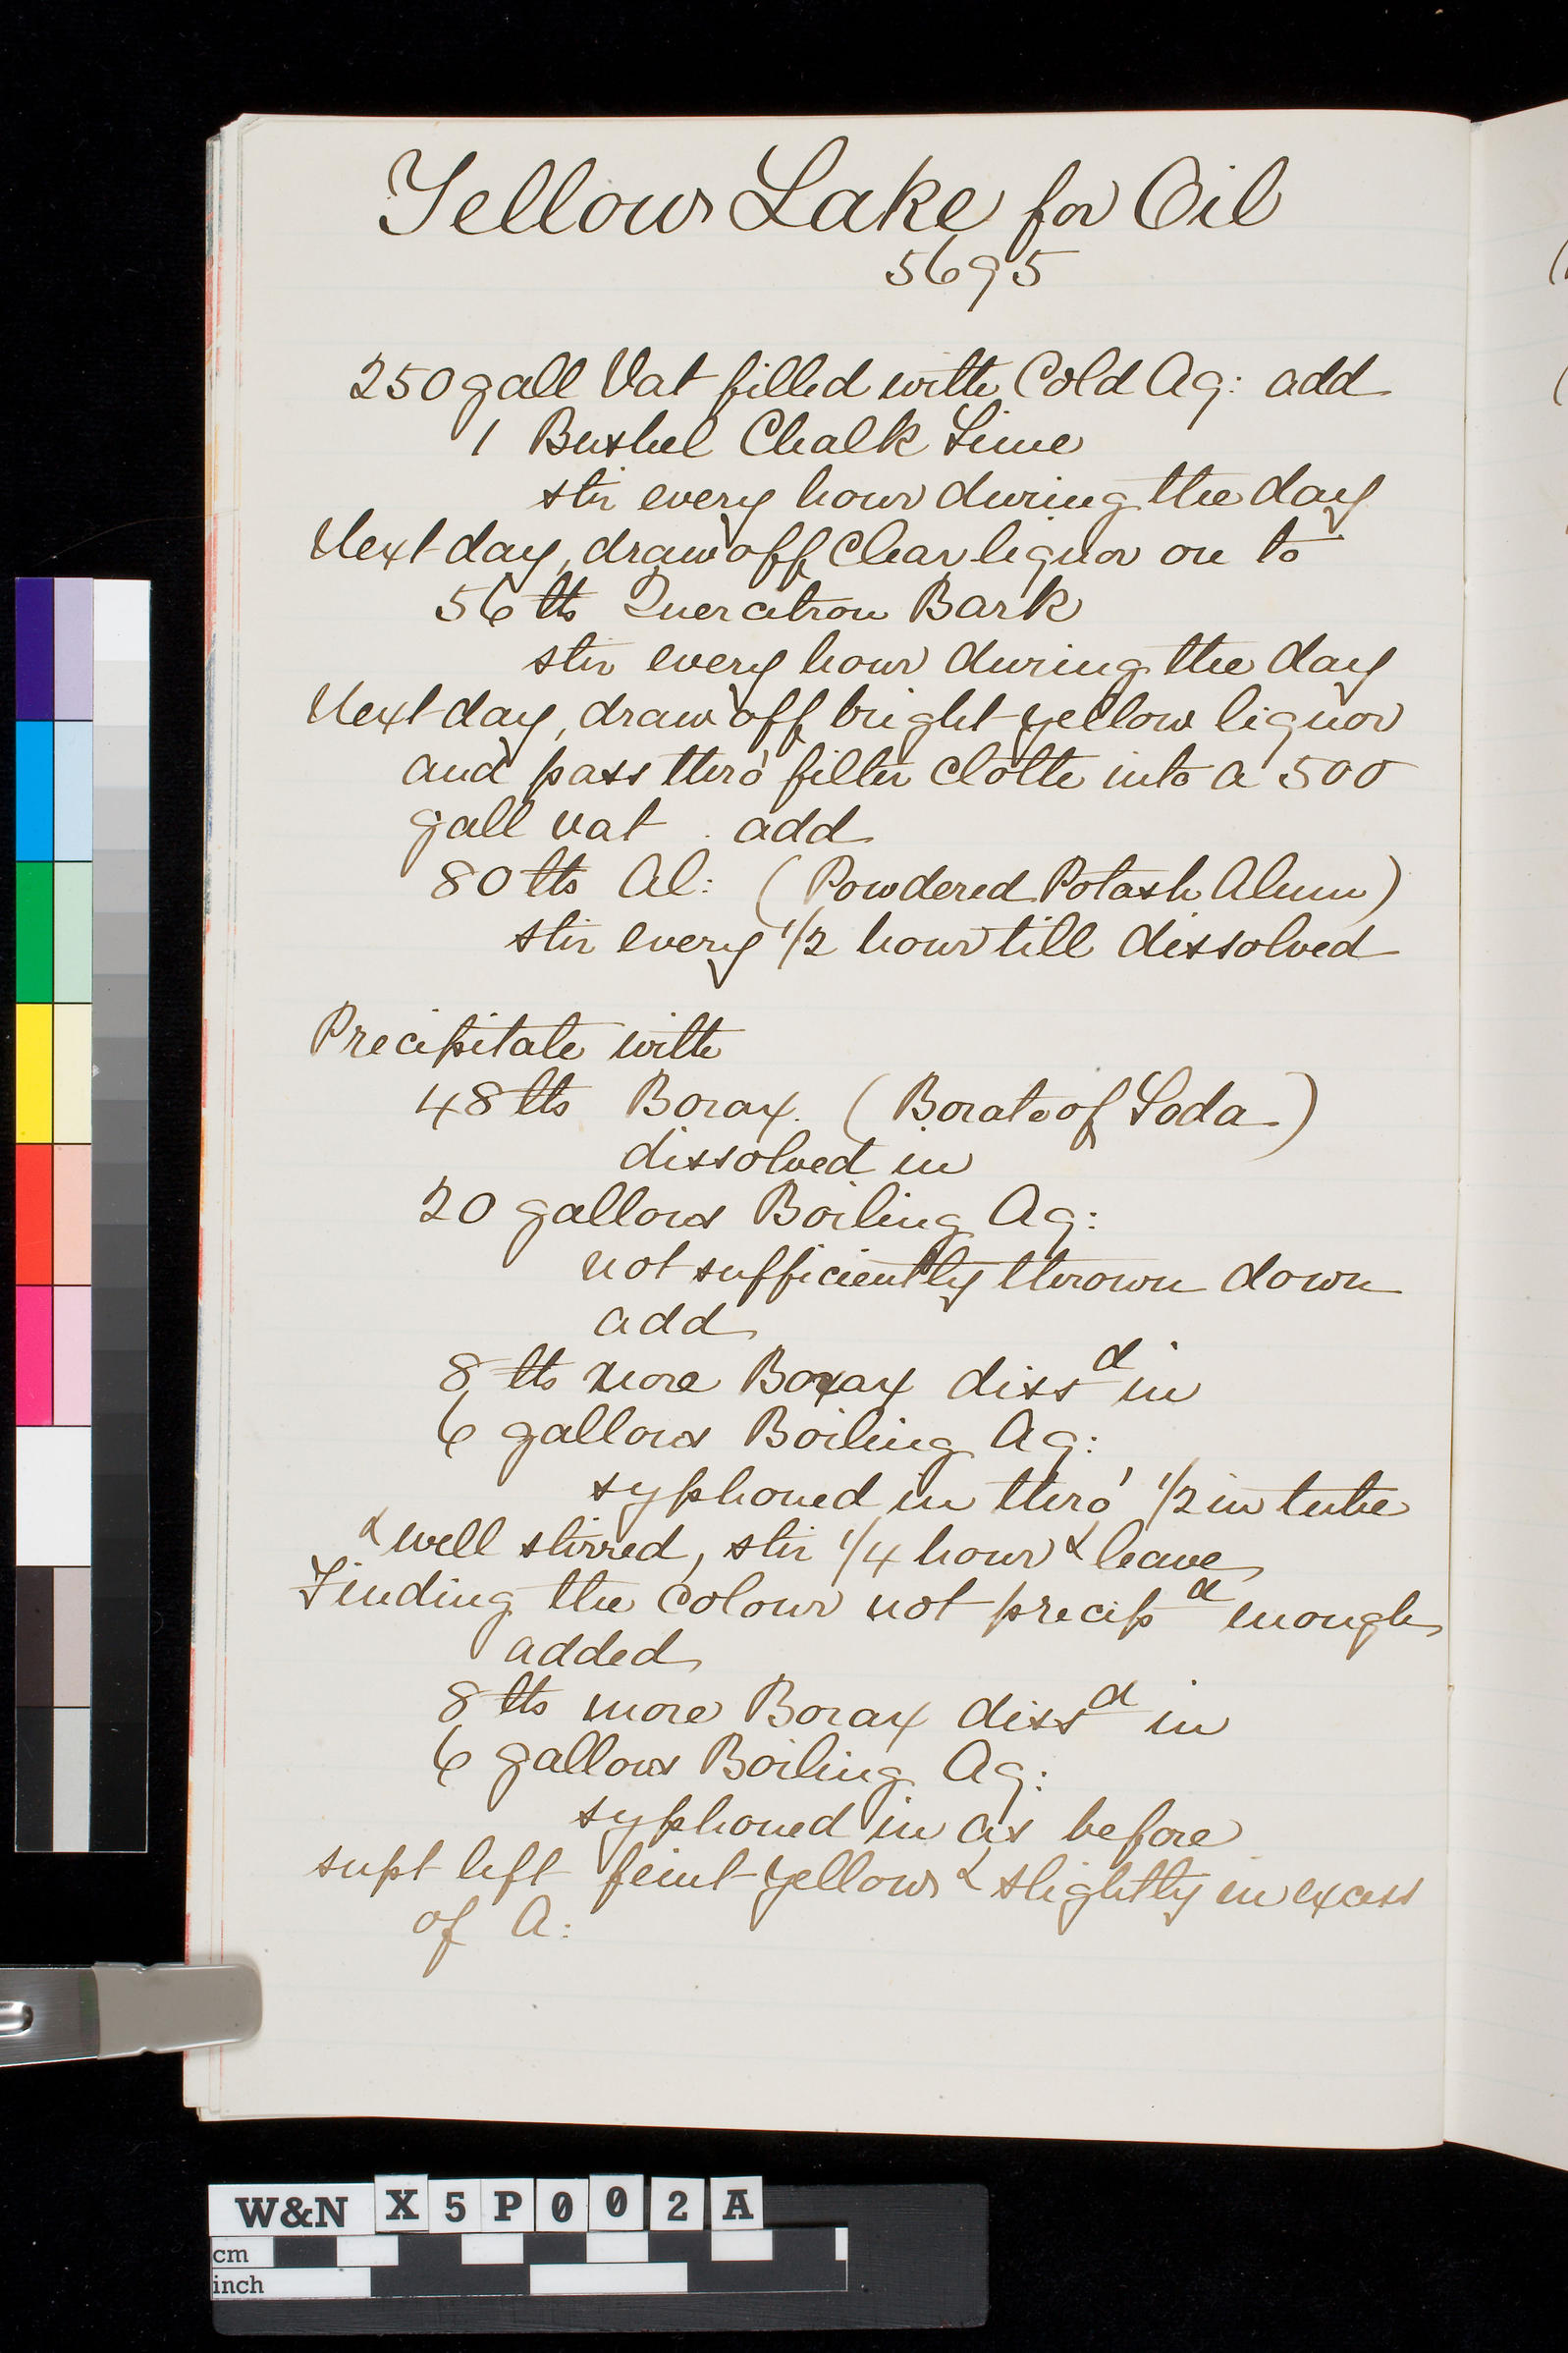 Yellow Lake for Oil
5695
250 gall Vat filled with Cold Aq: add
1 Bushel Chalk Lime
stir every hour during the day
Next day, draw off clear liquor on to
56 lbs Quercitron Bark
stir every hour during the day
Next day, draw off bright yellow liquor
and pass thro' filter cloth into a 500
gall vat . add
80 lbs Al: (Powdered Potash Alum)
stir every 1/2 hour till dissolved
Precipitate with
48 lbs Borax. (Borate of Soda)
dissolved in
20 gallons Boiling Aq:
not sufficiently thrown down
add
8 lbs more Borax dissd in
6 gallons Boiling Aq:
syphoned in thro' 1/2 in tube
& well stirred, stir 1/4 hour & leave
Finding the colour not precipd enough
added
8 lbs more Borax dissd in
6 gallons Boiling Aq:
syphoned in as before
supt left feint yellow & slightly in excess
of A:
W&N X5P002A
cm
inch